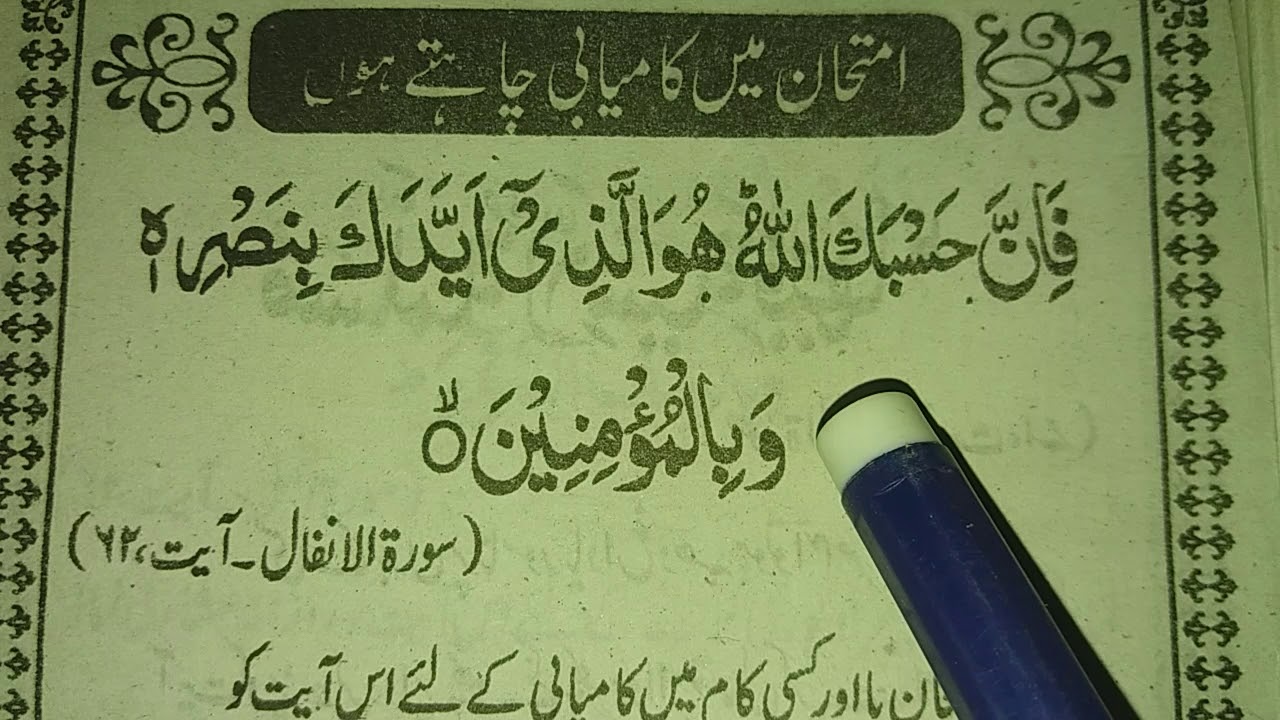 امتحان میں کامیابی چاہتے ہوں
فَاِنَّ حَسْبَكَ اللّٰهُؕ هُوَ الَّذِیْۤ اَیَّدَكَ بِنَصْرِهٖ
وَ بِالْمُؤْمِنِیْنَۙ۝
(سورۃ الانفال۔ آیت، ۶۲)
یا اور کسی کام میں کامیابی کے لئے اس آیت کو